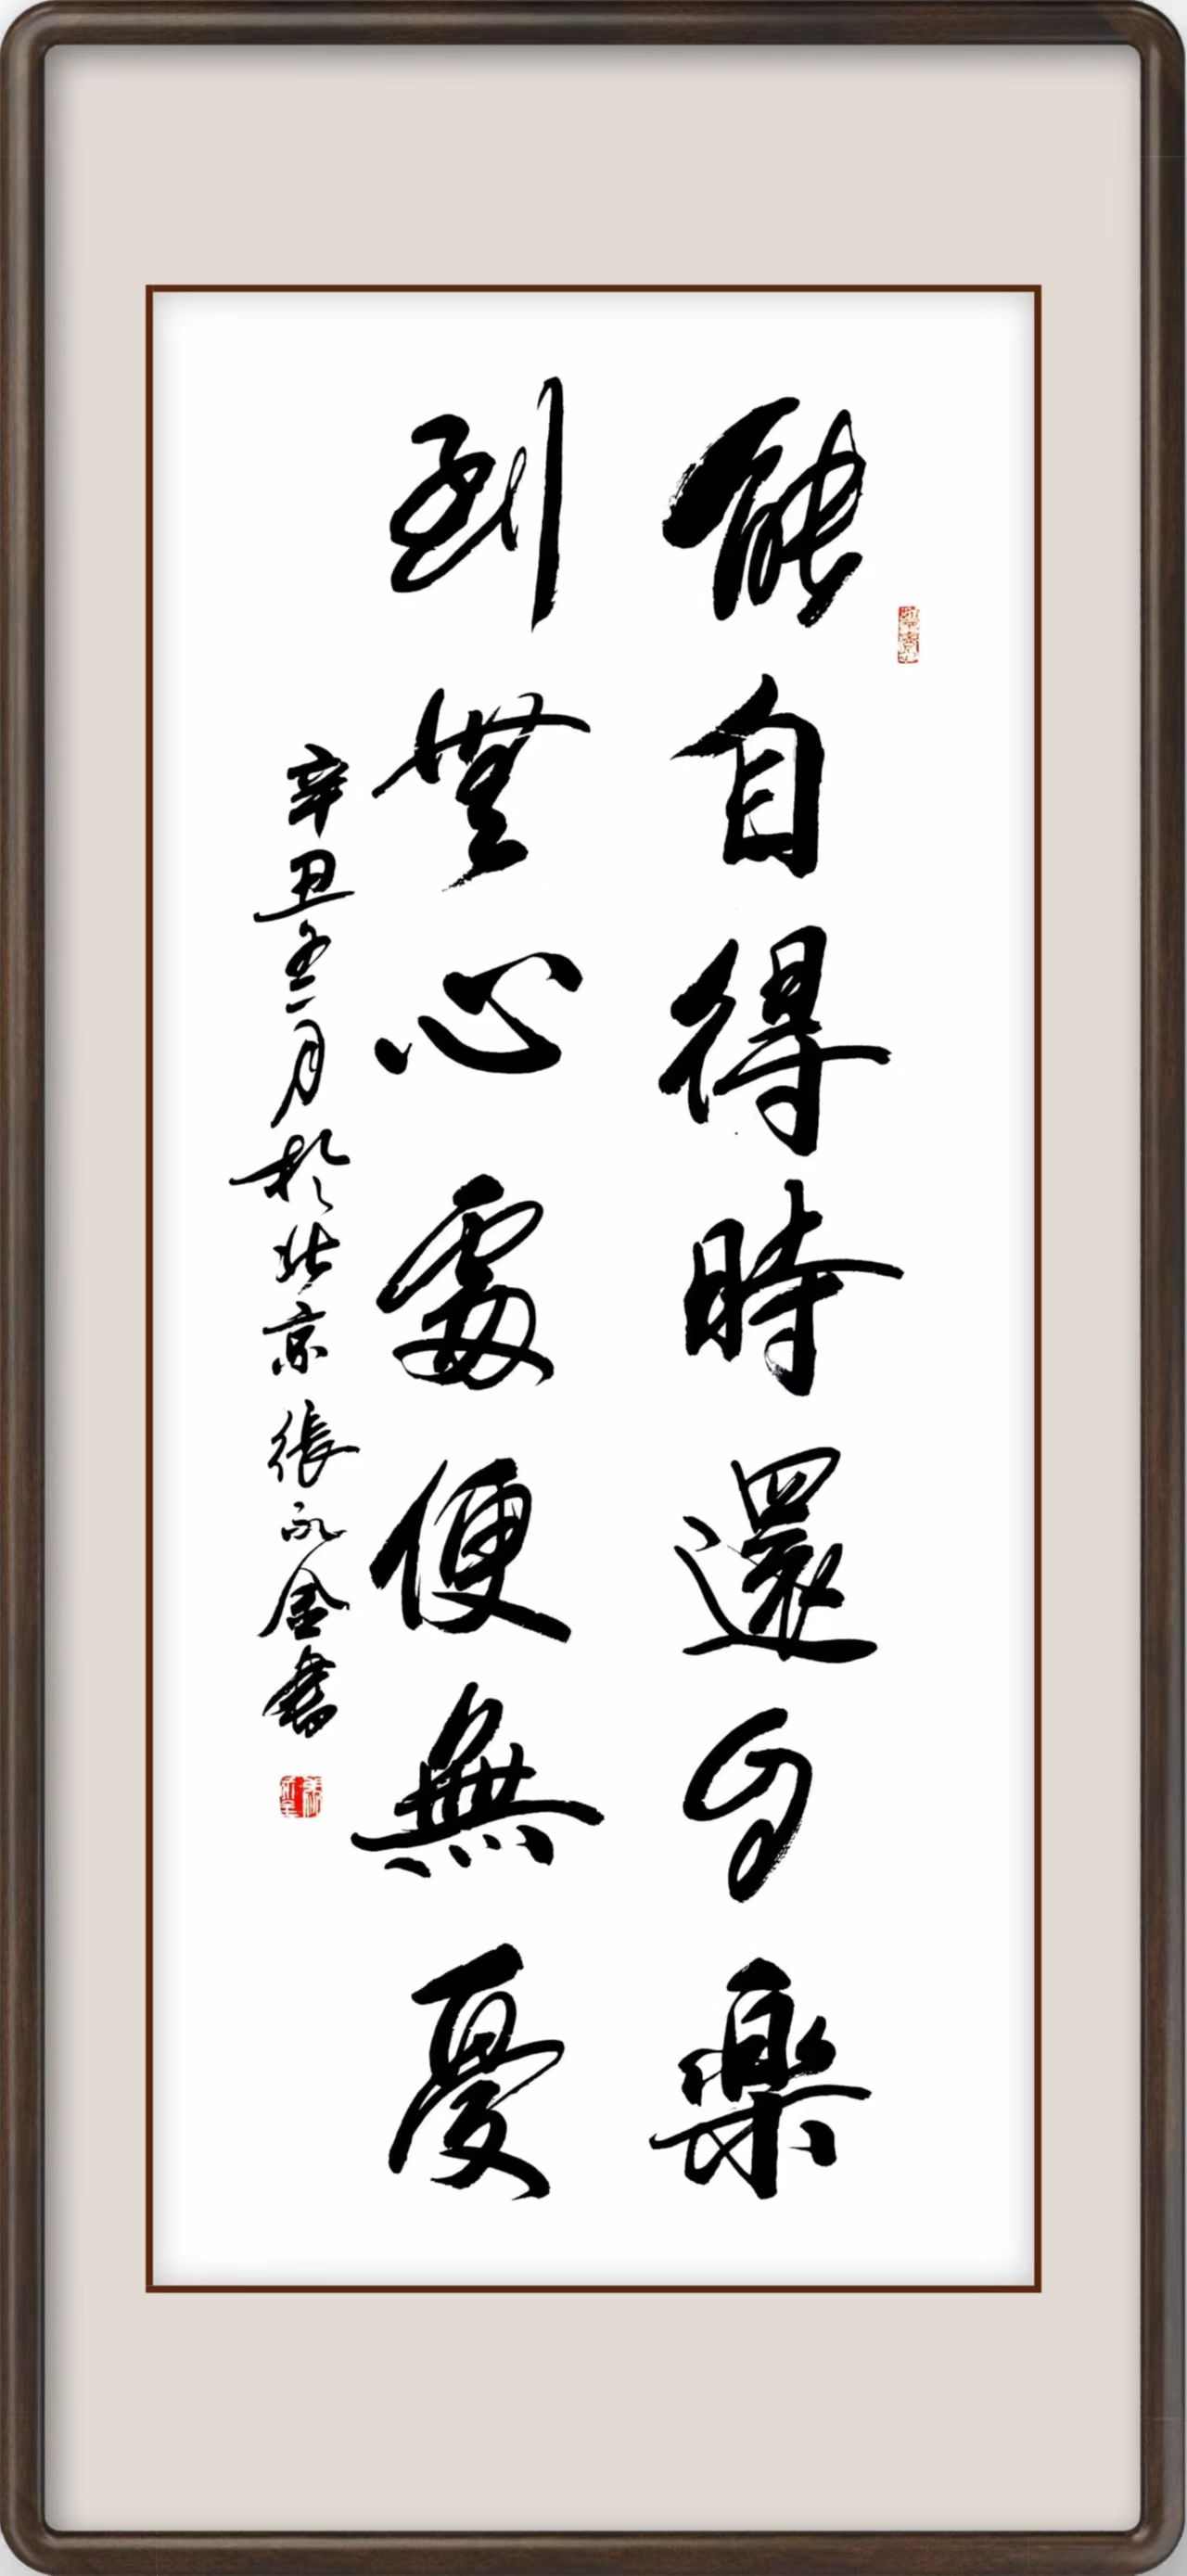 能自得時還自樂
到無心處便無憂
辛丑年二月於北京張永金書